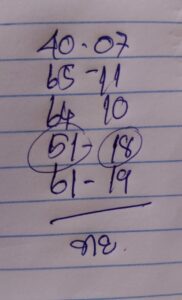 40-07
65-11
64 10
51-18
61-19